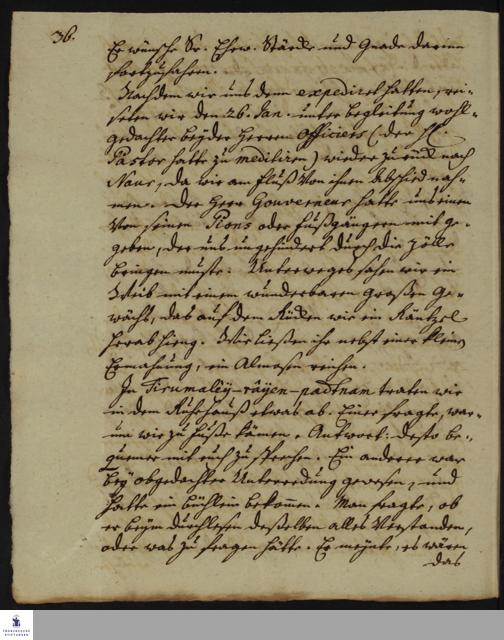 36.
Er wünsche Sr. Ehrw. Stärke und Gnade darinn
fortzufahren.
Nachdem wir uns denn expediret hatten, rei-
seten wir den 26. Jan. unter Begleitung wohl-
gedachter beyder Herren Officiers (der H.
Pastor hatte zu mediliren) wieder zurück nach
Naur, da wir am Fluß von ihnen Abschied nah-
men. Der Herr Gouverneur hatte uns einen
von seinen Pions oder Fußgängern mit ge-
geben, der uns ungehindert durch die Zölle
bringen muste. Unterweges sahen wir ein
Weib mit einem wunderbaren großen Ge-
wächs, das auf dem Rücken wie ein Räntzel
herab hieng. Wir ließen ihr nebst einer kleinen
Ermahnung, ein Almosen reichen.
In Tirumalêy-râyen-padtnam traten wir
in dem Ruhehauß etwas ab. Einer fragte, war-
um wir zu Fuße kämen. Antwort: desto be-
quemer mit euch zu sprechen. Ein anderer war
bey obgedachter Unterredung gewesen, und
hatte ein büchlein bekommen. Man fragte, ob
er beym durchlesen deßelben alles verstanden,
oder was zu fragen hätte. Er meynte, es wären
das
FRANCKESCHE
STIFTUNGEN